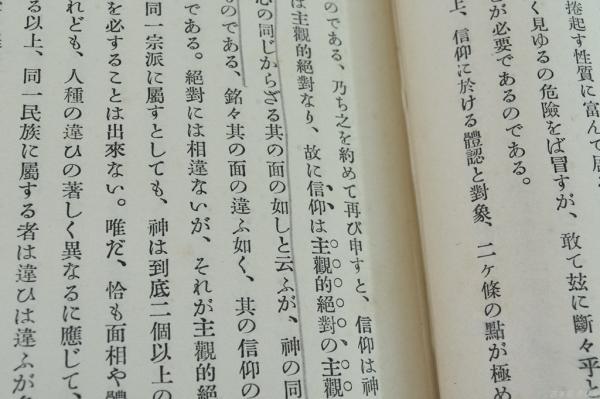 捲起す性質に富んで居
く見ゆるの危險をば冒すが、敢て玆に斷々乎と
が必要であるのである。
上、信仰に於ける體認と對象、二ヶ條の點が極め
のである、乃ち之を約めて再び申すと、信仰は神
は主觀的絕對なり、故に信仰は主觀的絕對の主觀
心の同じからざる其の面の如しと云ふが、神の同
ものである、銘々其の面の違ふ如く、其の信仰の
である。絕對には相違ないが、それが主觀的絕
同一宗派に屬すとしても、神は到底二個以上の
を必することは出來ない。唯だ、恰も面相や體
れども、人種の違ひの著しく異なるに應じて、
る以上、同一民族に屬する者は違ひは違ふが